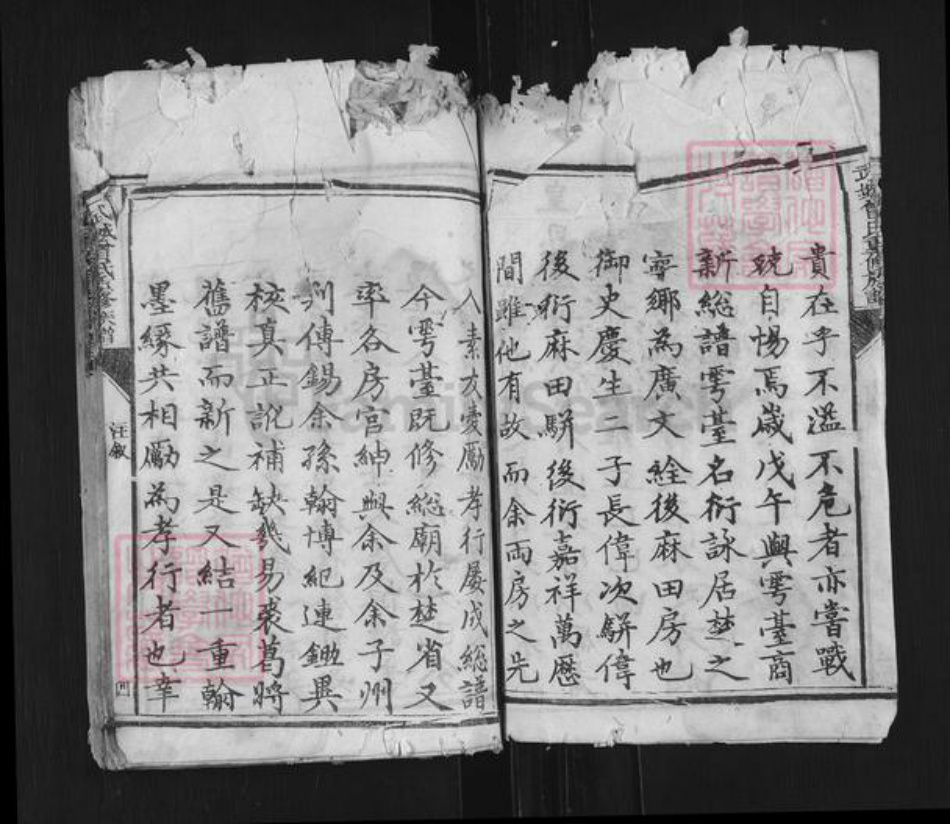 貴在乎不濫不危者亦嘗戰
兢自惕焉歲戊午與雩臺商
新總譜雩臺名衍詠居楚之
寧鄉為廣文銓後麻田房也
御史慶生二子長偉次駢偉
後衍麻田駢後衍嘉祥萬歷
間雖他有故而余兩房之先
人素友愛勵孝行屢成總譜
今雩臺既修總廟於楚省又
率各房官紳與余及余子州
判傳錫余孫翰博紀連鋤異
校真正訛補缺幾易裘葛將
舊譜而新之是又結一重翰
墨緣共相勵為孝行者也幸
武城曾氏重修族譜